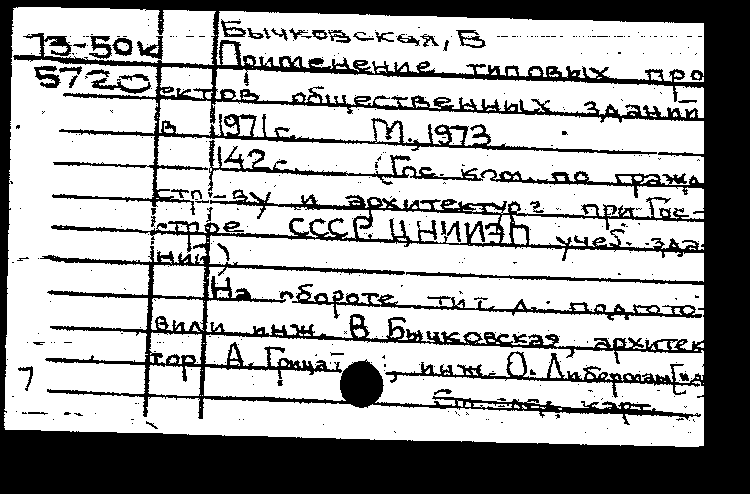 Бычковская, В
73-50к
5720
Применение типовых про
ектов общественных зданий
в 1971 г. М., 1973.
142 с. (Гос. ком. по гражд.
стр-ву и архитектуре при Гос-
строе СССР. ЦНИИЭП учеб. зда-
ний)
На обороте тит. л.: подгото-
вили инж. В Бычковская, архитек
тор А. Грица , инж. О. Либерман [и д
7 См. след. карт.